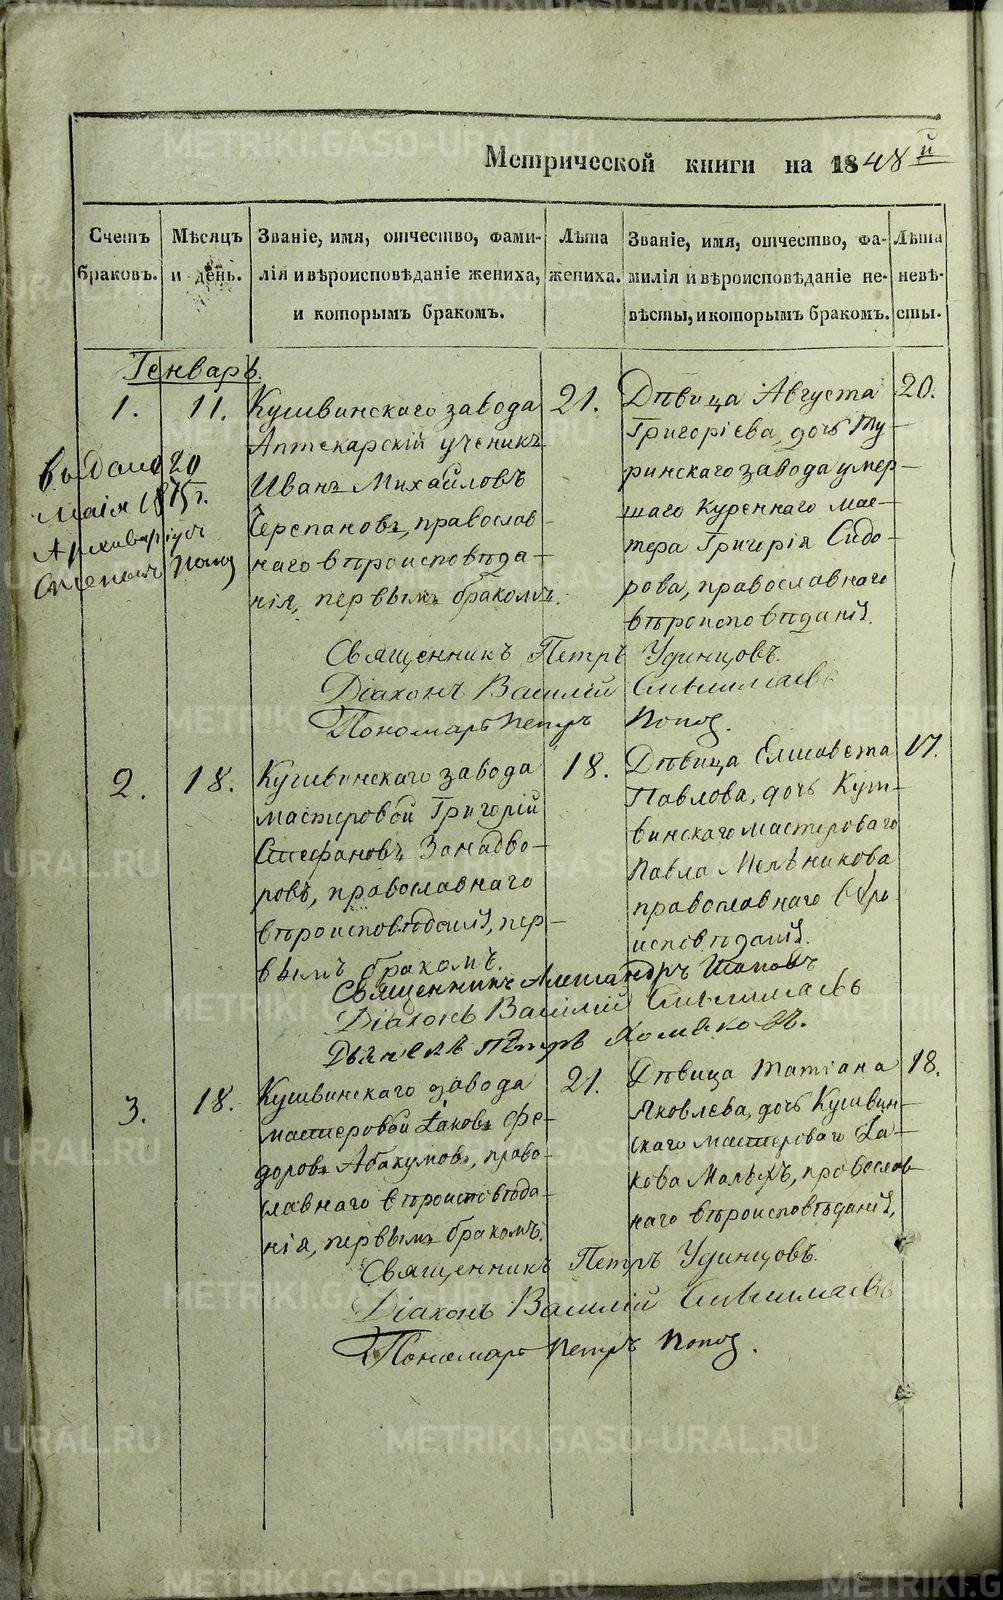 Метрической книги на 1848 й
Счетъ браковъ.
Мѣсяцъ и день.
Званіе, имя, отчество, фами-
лія и вѣроисповѣданіе жениха,
и которымъ бракомъ.
Лѣта жениха.
Званіе, имя, отчество, фа-
милія и вѣроисповѣданіе не-
вѣсты, и которымъ бракомъ.
Лѣта невѣ-
сты.
Генварь.
1. 11.
Кушвинскаго завода
Аптекарскій ученикъ
Иванъ Михайловъ
Черепановъ, православ-
наго вѣроисповѣда-
нія, первымъ бракомъ.
21.
Дѣвица Августа
Григоріева, дочь Ту-
ринскаго завода умер-
шаго куреннаго мас-
тера Григорія Сидо-
рова, православнаго
вѣроисповѣданія.
20.
Выдано 20
Маія 1875 г.
Архиваріусъ
Священникъ Петръ Удинцовъ.
Діаконъ Василій
Пономарь Петръ Попов.
2. 18.
Кушвинскаго завода
мастеровой Григорій
Стефановъ Занадво-
ровъ, православнаго
вѣроисповѣданія, пер-
вымъ бракомъ.
18.
Дѣвица Елисавета
Павлова, дочь Куш-
винскаго мастероваго
Павла Мельникова
православнаго вѣро
исповѣданія.
17.
Священникъ Александръ
Діаконъ Василій
Дьячекъ Петръ Хомяковъ.
3. 18.
Кушвинскаго завода
мастеровой Іаковъ Фе-
доровъ Абакумовъ, право-
славнаго вѣроисповѣда-
нія, первымъ бракомъ.
21.
Дѣвица Татіана
Яковлева, дочь Кушвин-
скаго мастероваго Іа-
кова Малыхъ, православ-
наго вѣроисповѣданія,
18.
Священникъ Петръ Удинцовъ.
Діаконъ Василій
Пономарь Петръ Попов.
METRIKI.GASO-URAL.RU